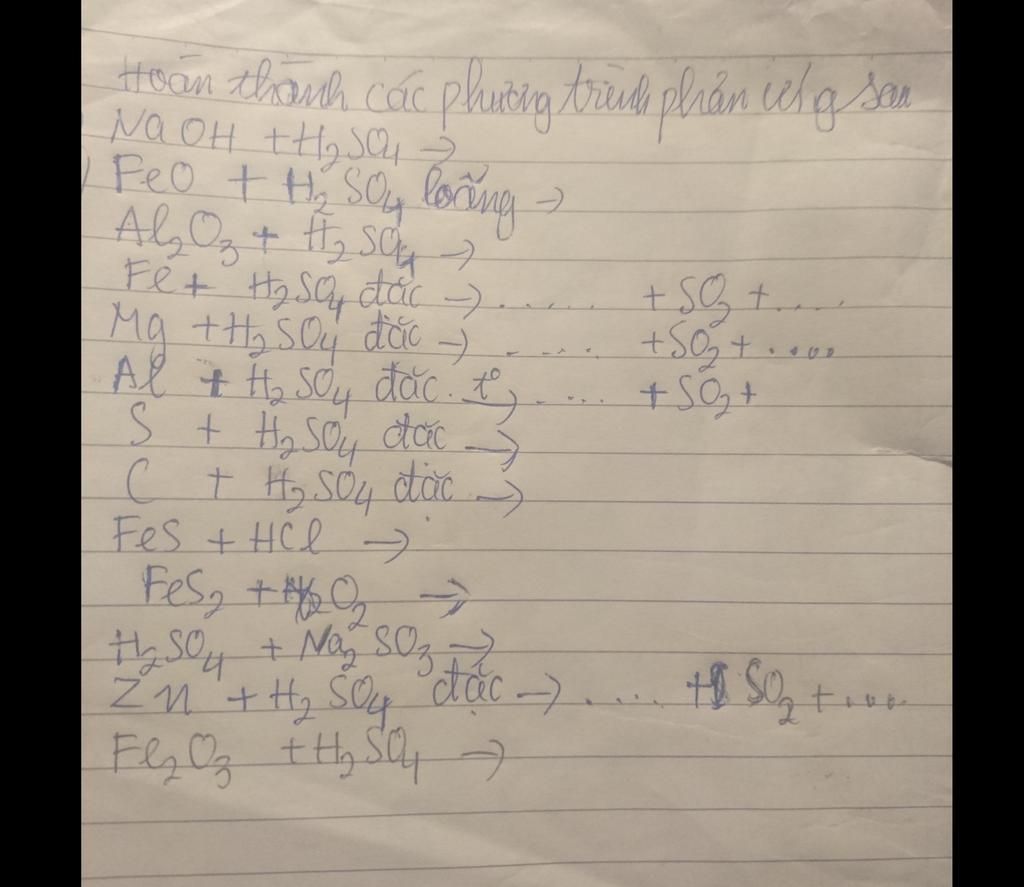 Hoàn thành các phương trình phản ứng sau
NaOH + H₂SO₄ →
) FeO + H₂SO₄ loãng →
Al₂O₃ + H₂SO₄ →
Fe + H₂SO₄ đặc → ...... + SO₂ + ....
Mg + H₂SO₄ đặc → ..... + SO₂ + ....
Al + H₂SO₄ đặc. t° → .... + SO₂ +
S + H₂SO₄ đặc →
C + H₂SO₄ đặc →
FeS + HCl →
FeS₂ + O₂ →
H₂SO₄ + Na₂SO₃ →
Zn + H₂SO₄ đặc → ..... + SO₂ + ....
Fe₂O₃ + H₂SO₄ →